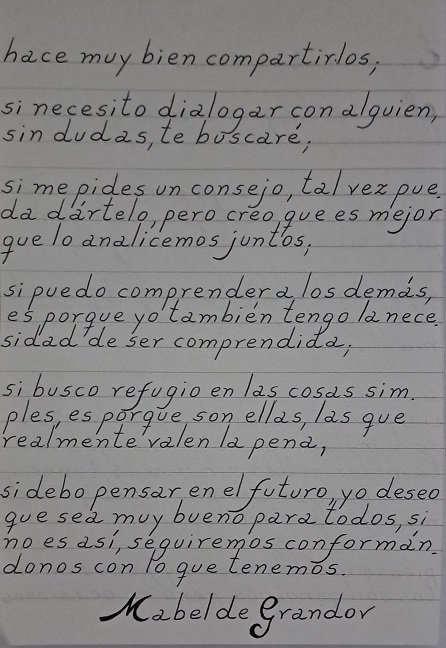 hace muy bien compartirlos;
si necesito dialogar con alguien,
sin dudas, te buscaré;
si me pides un consejo, tal vez pue-
da dártelo, pero creo que es mejor
que lo analicemos juntos;
si puedo comprender a los demás,
es porque yo también tengo la nece-
sidad de ser comprendida;
si busco refugio en las cosas sim-
ples, es porque son ellas, las que
realmente valen la pena,
si debo pensar en el futuro, yo deseo
que sea muy bueno para todos, si
no es así, seguiremos conformán-
donos con lo que tenemos.
Mabel de Grandov